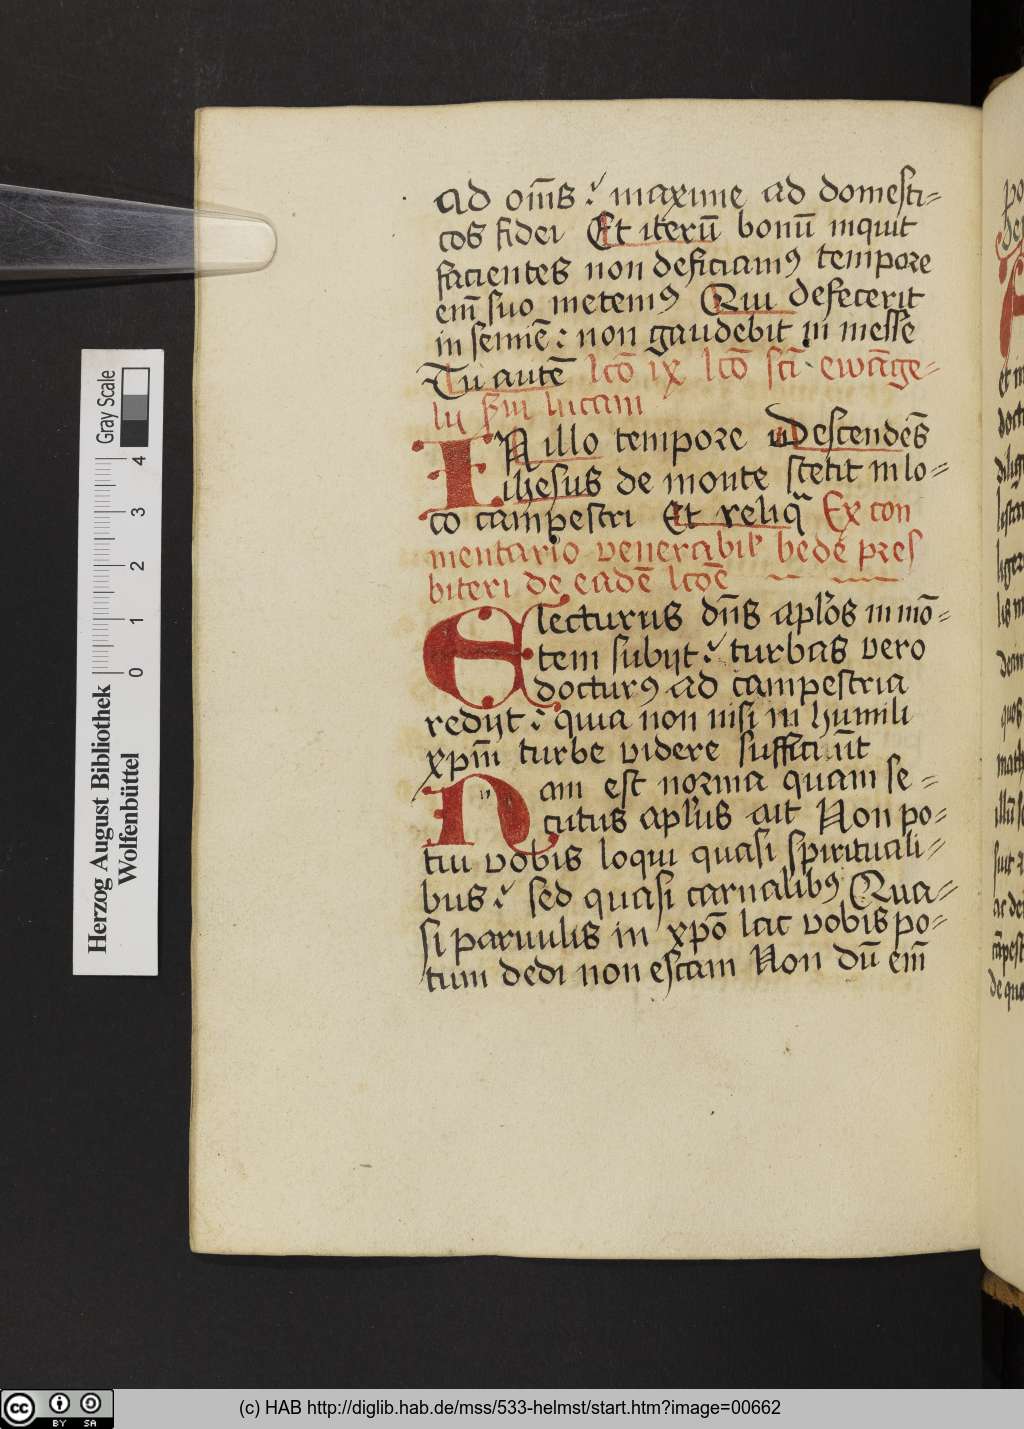 ad om̅s : maxime ad domesti=
cos fidei Et iterū bonū inquit
facientes non deficiamꝰ tempore
em̅ suo metemꝰ Qui defecerit
in semiē : non gaudebit in messe
Tu autē lcō ix lcō sc̅i · ewāge=
lij lucam
IN illo tempore Descendēs
ihesus de monte stetit in lo=
co campestri Et reliq̄ Ex com
mentario venerabil' bede pres
biteri de eadē lcōe
Electurus dn̅s apl̅os in mō=
tem subijt : turbas vero
docturꝰ ad campestria
redijt : quia non nisi in humili
xp̅m turbe videre sufficiūt
Nam est norma quam se=
cutus apl̅us ait Non po=
tui vobis loqui quasi spirituali=
bus : sed quasi carnalibꝰ Qua=
si paruulis in xp̅o lac vobis po=
tum dedi non escam Non dū em̅
Herzog August Bibliothek
Wolfenbüttel
Gray Scale
0 1 2 3 4
(c) HAB http://diglib.hab.de/mss/533-helmst/start.htm?image=00662
cc BY SA